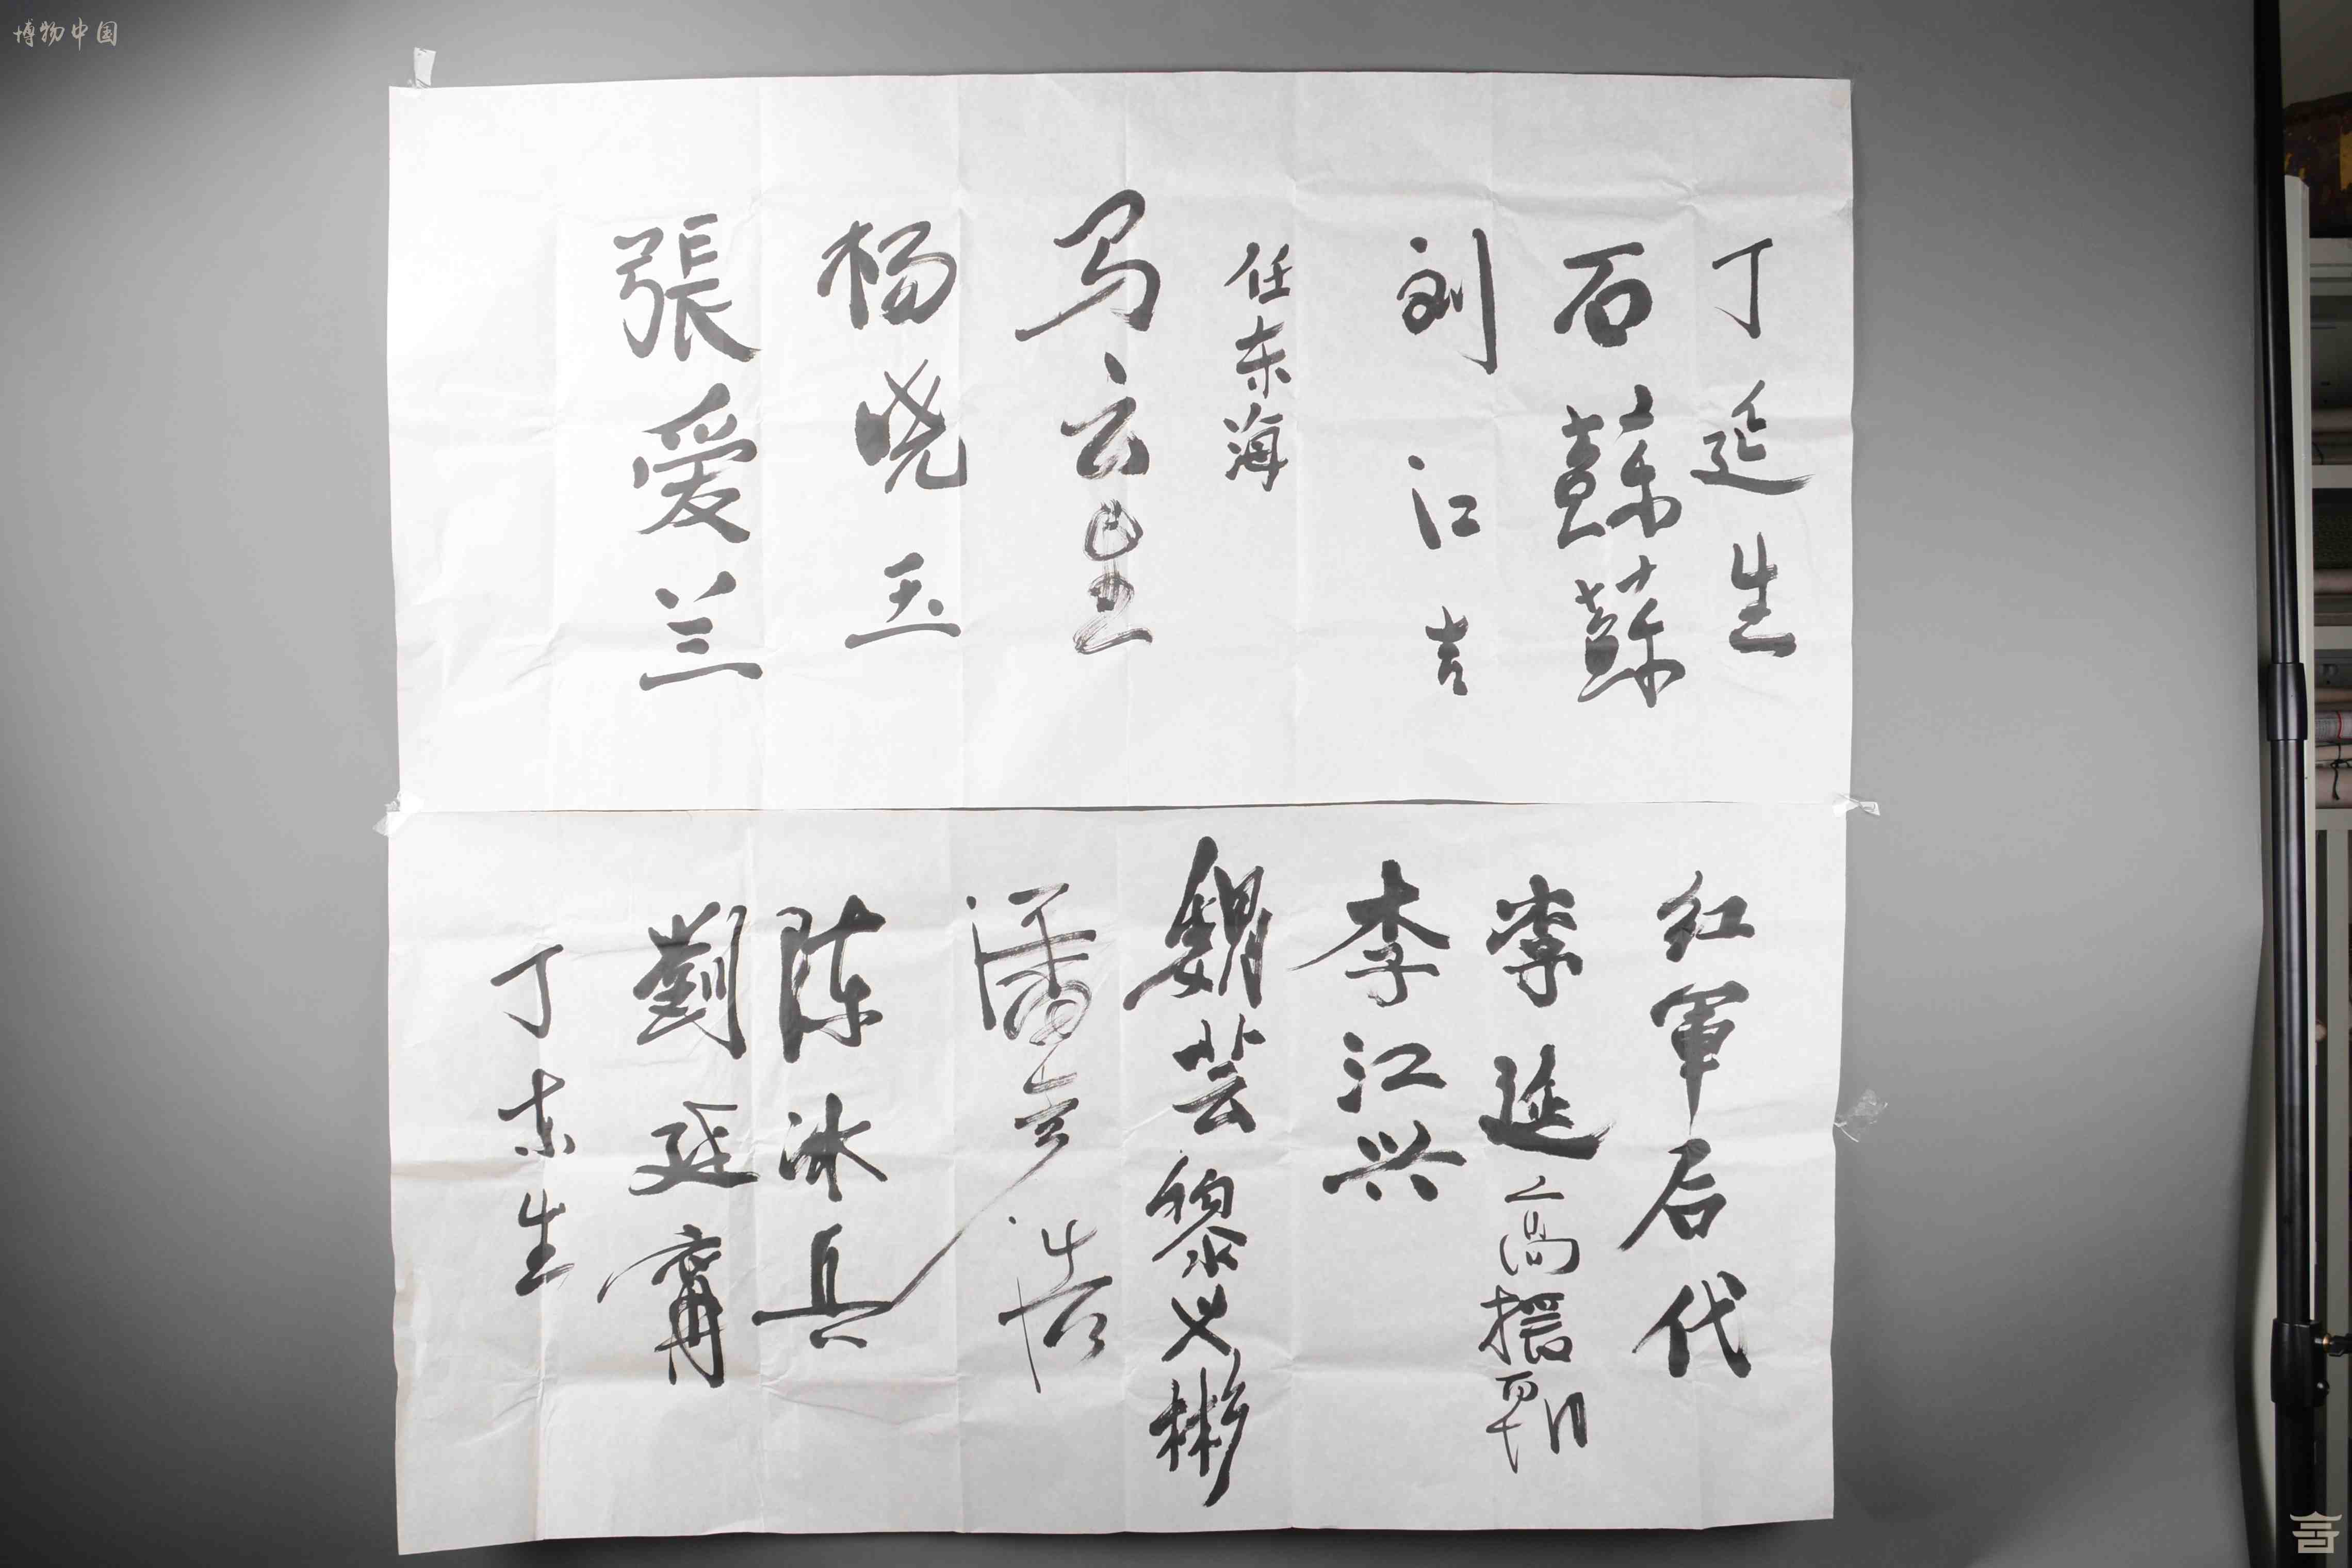 博物中国
丁延生
石蘇蘇
刘江吉
任东海
马云
杨晓玉
張爱兰
红軍后代
李延
高援朝
李江兴
魏芸
黎义彬
潘
陈冰兵
劉延甯
丁东生